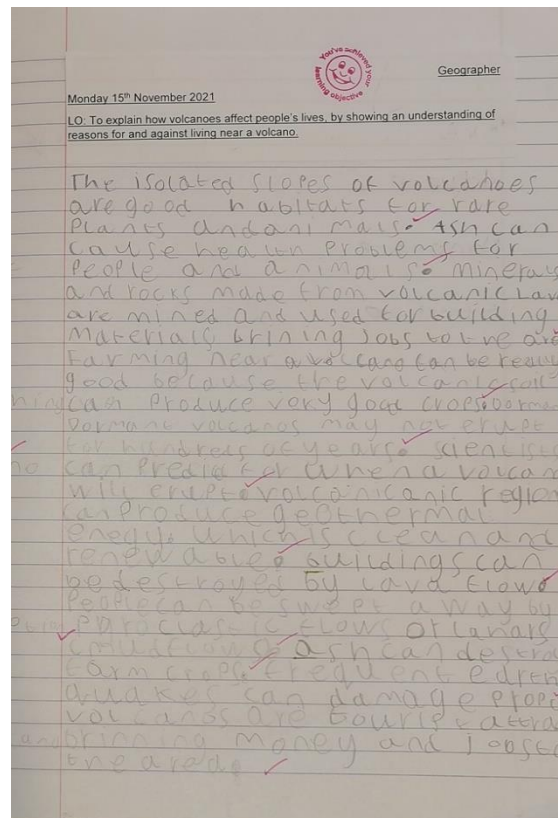 You've achieved your learning objective
Geographer
Monday 15th November 2021
LO: To explain how volcanoes affect people's lives, by showing an understanding of
reasons for and against living near a volcano.
The isolated slopes of volcanoes
are good habitats for rare
Plants and animals. Ash can
cause health problems for
People and animals. minerals
and rocks made from volcanic lav
are mined and used for building
materials brining jobs to the are
Farming near a volcano can be really
good because the volcanic soil
can produce very good crops. Dorma
Dormant volcanos may not erupt
for hundreds of years. scientists
can Predict for when a volcan
will erupt. volcanicanic region
can produce geothermal
enegy. which is clean and
renewable. buildings can
be destroyed by lava flow.
People can be swept away by
flows or lahars
(mudflows). ash can destro
farm crops. frequent earth
quakes can damage prope
volcanos are tourist attra
brinning money and jobs to
the area.